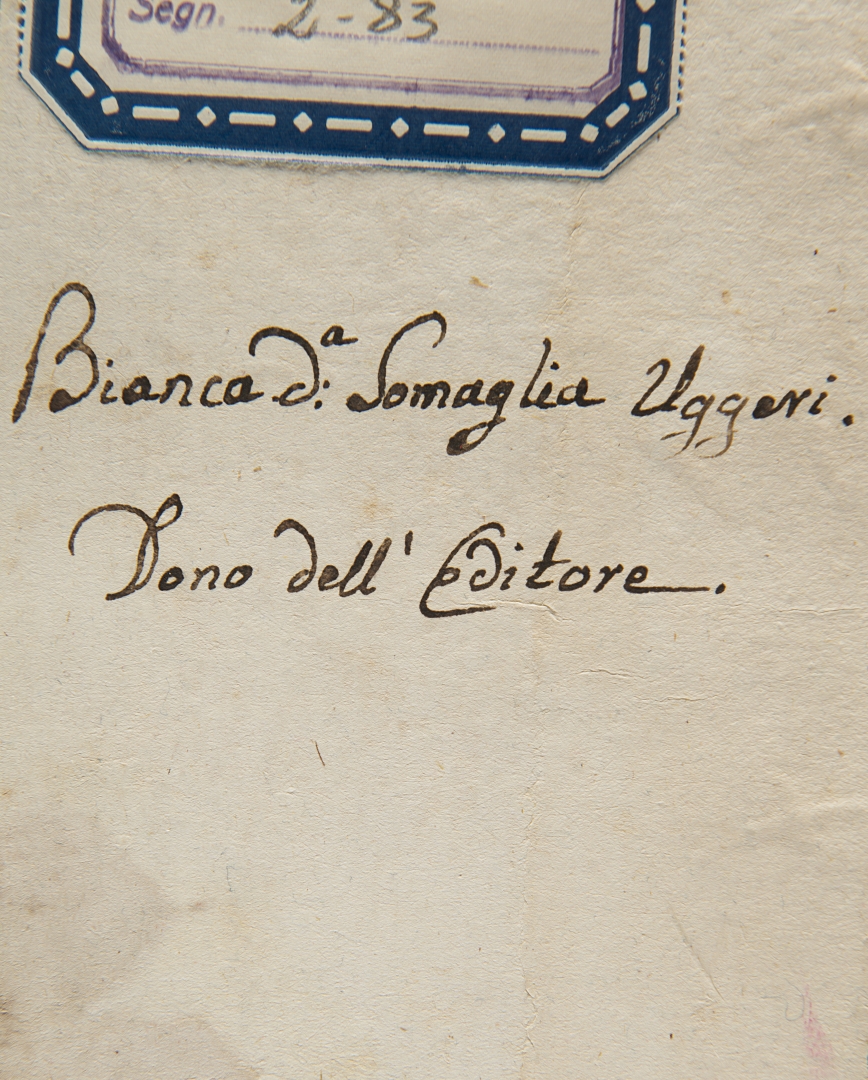 Segn. 2-83
Bianca d:ª Somaglia Uggeri.
Dono dell' Editore.